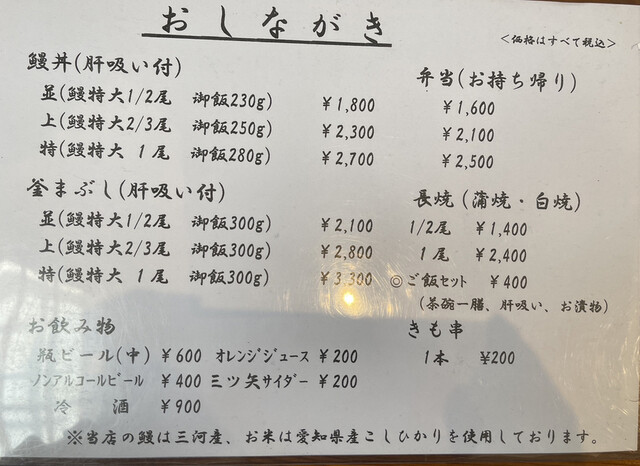 おしながき
＜価格はすべて税込＞
鰻丼(肝吸い付)
並(鰻特大1/2尾 御飯230g) ￥1,800
上(鰻特大2/3尾 御飯250g) ￥2,300
特(鰻特大 1尾 御飯280g) ￥2,700
弁当(お持ち帰り)
￥1,600
￥2,100
￥2,500
釜まぶし(肝吸い付)
並(鰻特大1/2尾 御飯300g) ￥2,100
上(鰻特大2/3尾 御飯300g) ￥2,800
特(鰻特大 1尾 御飯300g) ￥3,300
長焼 (蒲焼・白焼)
1/2尾 ￥1,400
1尾 ￥2,400
◎ご飯セット ￥400
(茶碗一膳、肝吸い、お漬物)
きも串
1本 ¥200
お飲み物
瓶ビール(中) ￥600 オレンジジュース ￥200
ノンアルコールビール ￥400 三ツ矢サイダー ￥200
冷 酒 ￥900
※当店の鰻は三河産、お米は愛知県産こしひかりを使用しております。